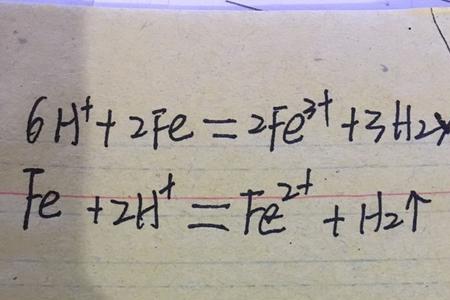 6H⁺+2Fe=2Fe³⁺+3H₂
Fe+2H⁺=Fe²⁺+H₂↑